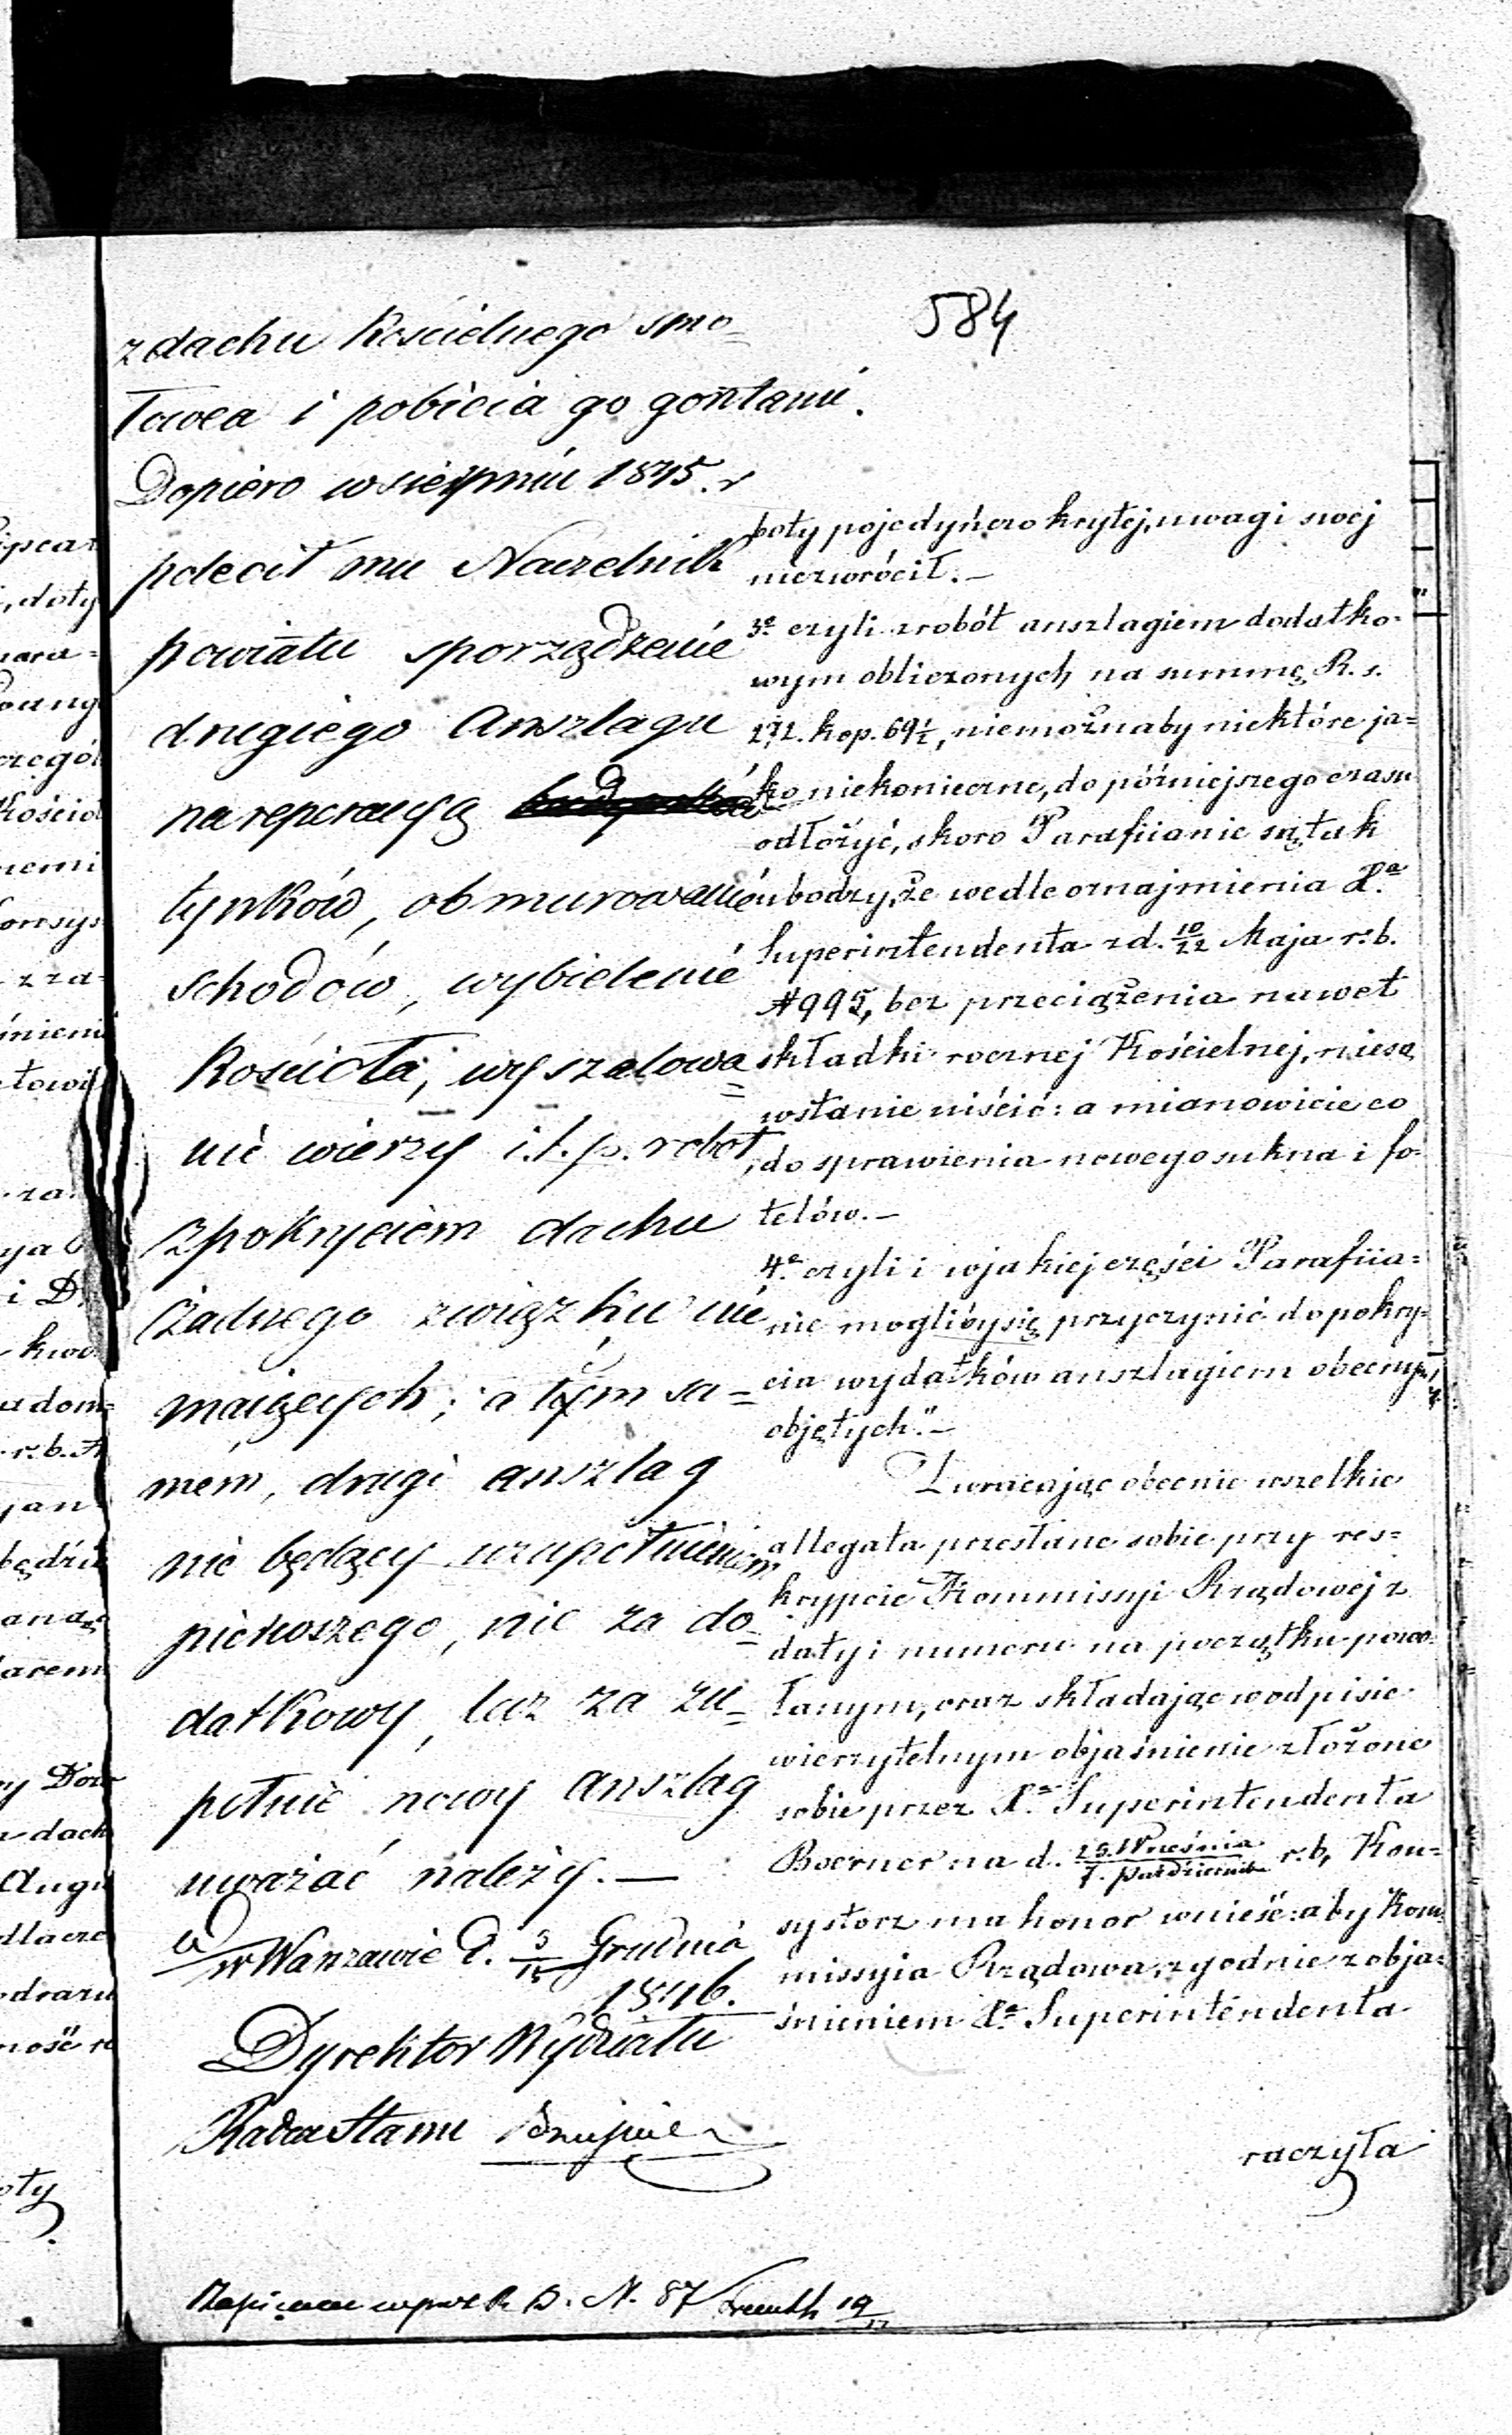 584
z dachu Kościelnego smo-
łowca i pobicia go gontami.
Dopiero w sierpniu 1845. r
polecił mu Naczelnik
powiatu sporządzenie
drugiego Anszlagu
na reperacyą
tynków, obmurowanie
schodów, wybielenie
Kościoła, wyszalowa=
nie wierzy i.t.p. robot,
z pokryciem dachu
żadnego związku nie
maiących; a tym sa=
mém, drugi anszlag
nie będący uzupełnieniem
pierwszego, nie za do=
datkowy, lecz za zu=
pełnie nowy anszlag
uważać należy. —
w Warszawie d. 3/15 Grudnia
1846.
Dyrektor Wydziału
Radca Stanu
boty pojedyńczo krytej, uwagi swej
niezwrócił. —
3e czyli z robót anszlagiem dodatko-
wym obliczonych na summę R. s.
272. kop. 69½, niemożnaby niektóre ja=
ko niekonieczne, do późniejszego czasu
odłożyć, skoro Parafiianie są tak
ubodzy, że wedle oznajmienia Xa
Superintendenta z d. 10/22 Maja r. b.
N 995, bez przeciążenia nawet
składki rocznej Kościelnej, niesą
wstanie uiścić: a mianowicie co
do sprawienia nowego sukna i fo-
telów. —
4e czyli i w jakiej części Parafiia=
nie mogliby się przyczynić do pokry-
cia wydatków anszlagiem obecnym
objętych". —
Zwracając obecnie wszelkie
allegata przesłane sobie przy res=
krypcie Kommissyi Rządowej z
daty i numeru na początku powo-
łanym, oraz składając w odpisie
wierzytelnym objaśnienie złożone
sobie przez Xa Superintendenta
Boerner na d. 25. Września / 7. Października r. b, Kon=
systorz ma honor wnieść: aby Kom-
missyia Rządowa, zgodnie z obja=
śnieniem Xa Superintendenta
raczyła
N. 87 19